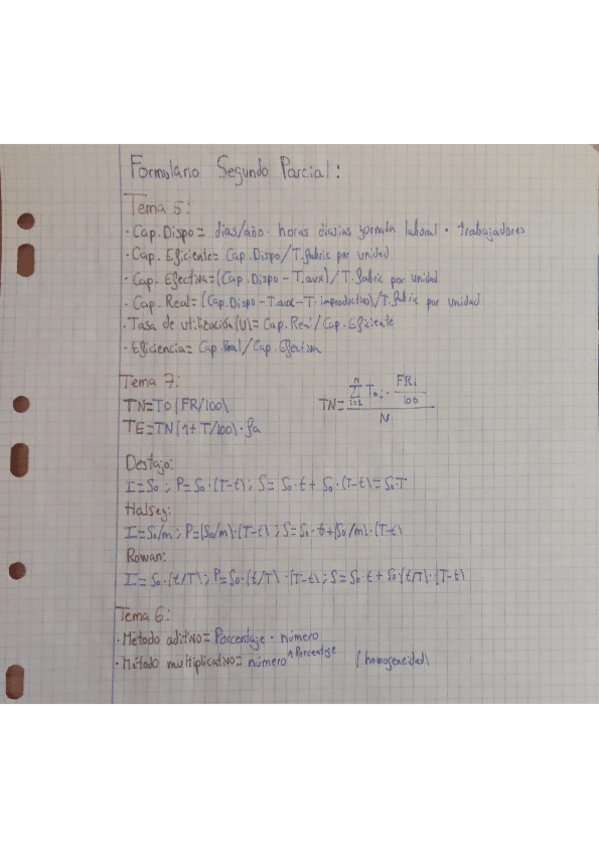 Formulario Segundo Parcial:
Tema 5:
· Cap. Dispo = días/año · horas diarias jornada laboral · trabajadores
· Cap. Eficiente = Cap. Dispo / T. fabric por unidad
· Cap. Efectiva = (Cap. Dispo - T. aux) / T. fabric por unidad
· Cap. Real = (Cap. Dispo - T. aux - T. improductivo) / T. fabric por unidad
· Tasa de utilización (U) = Cap. Real / Cap. Eficiente
· Eficiencia = Cap. Real / Cap. Efectiva
Tema 7:
TN = TO (FR/100)
TE = TN (1 + T/100) · fa
TN = (∑ i=1 n To,i · FRi/100) / N
Destajo:
I = So ; P = So · (T-t) ; S = So · t + So · (T-t) = So · T
Halsey:
I = So/m ; P = (So/m) · (T-t) ; S = So · t + (So/m) · (T-t)
Rowan:
I = So · (t/T) ; P = So · (t/T) · (T-t) ; S = So · t + So · (t/T) · (T-t)
Tema 6:
· Método aditivo = Porcentaje · número
· Método multiplicativo = número ^ Porcentaje (homogeneidad)